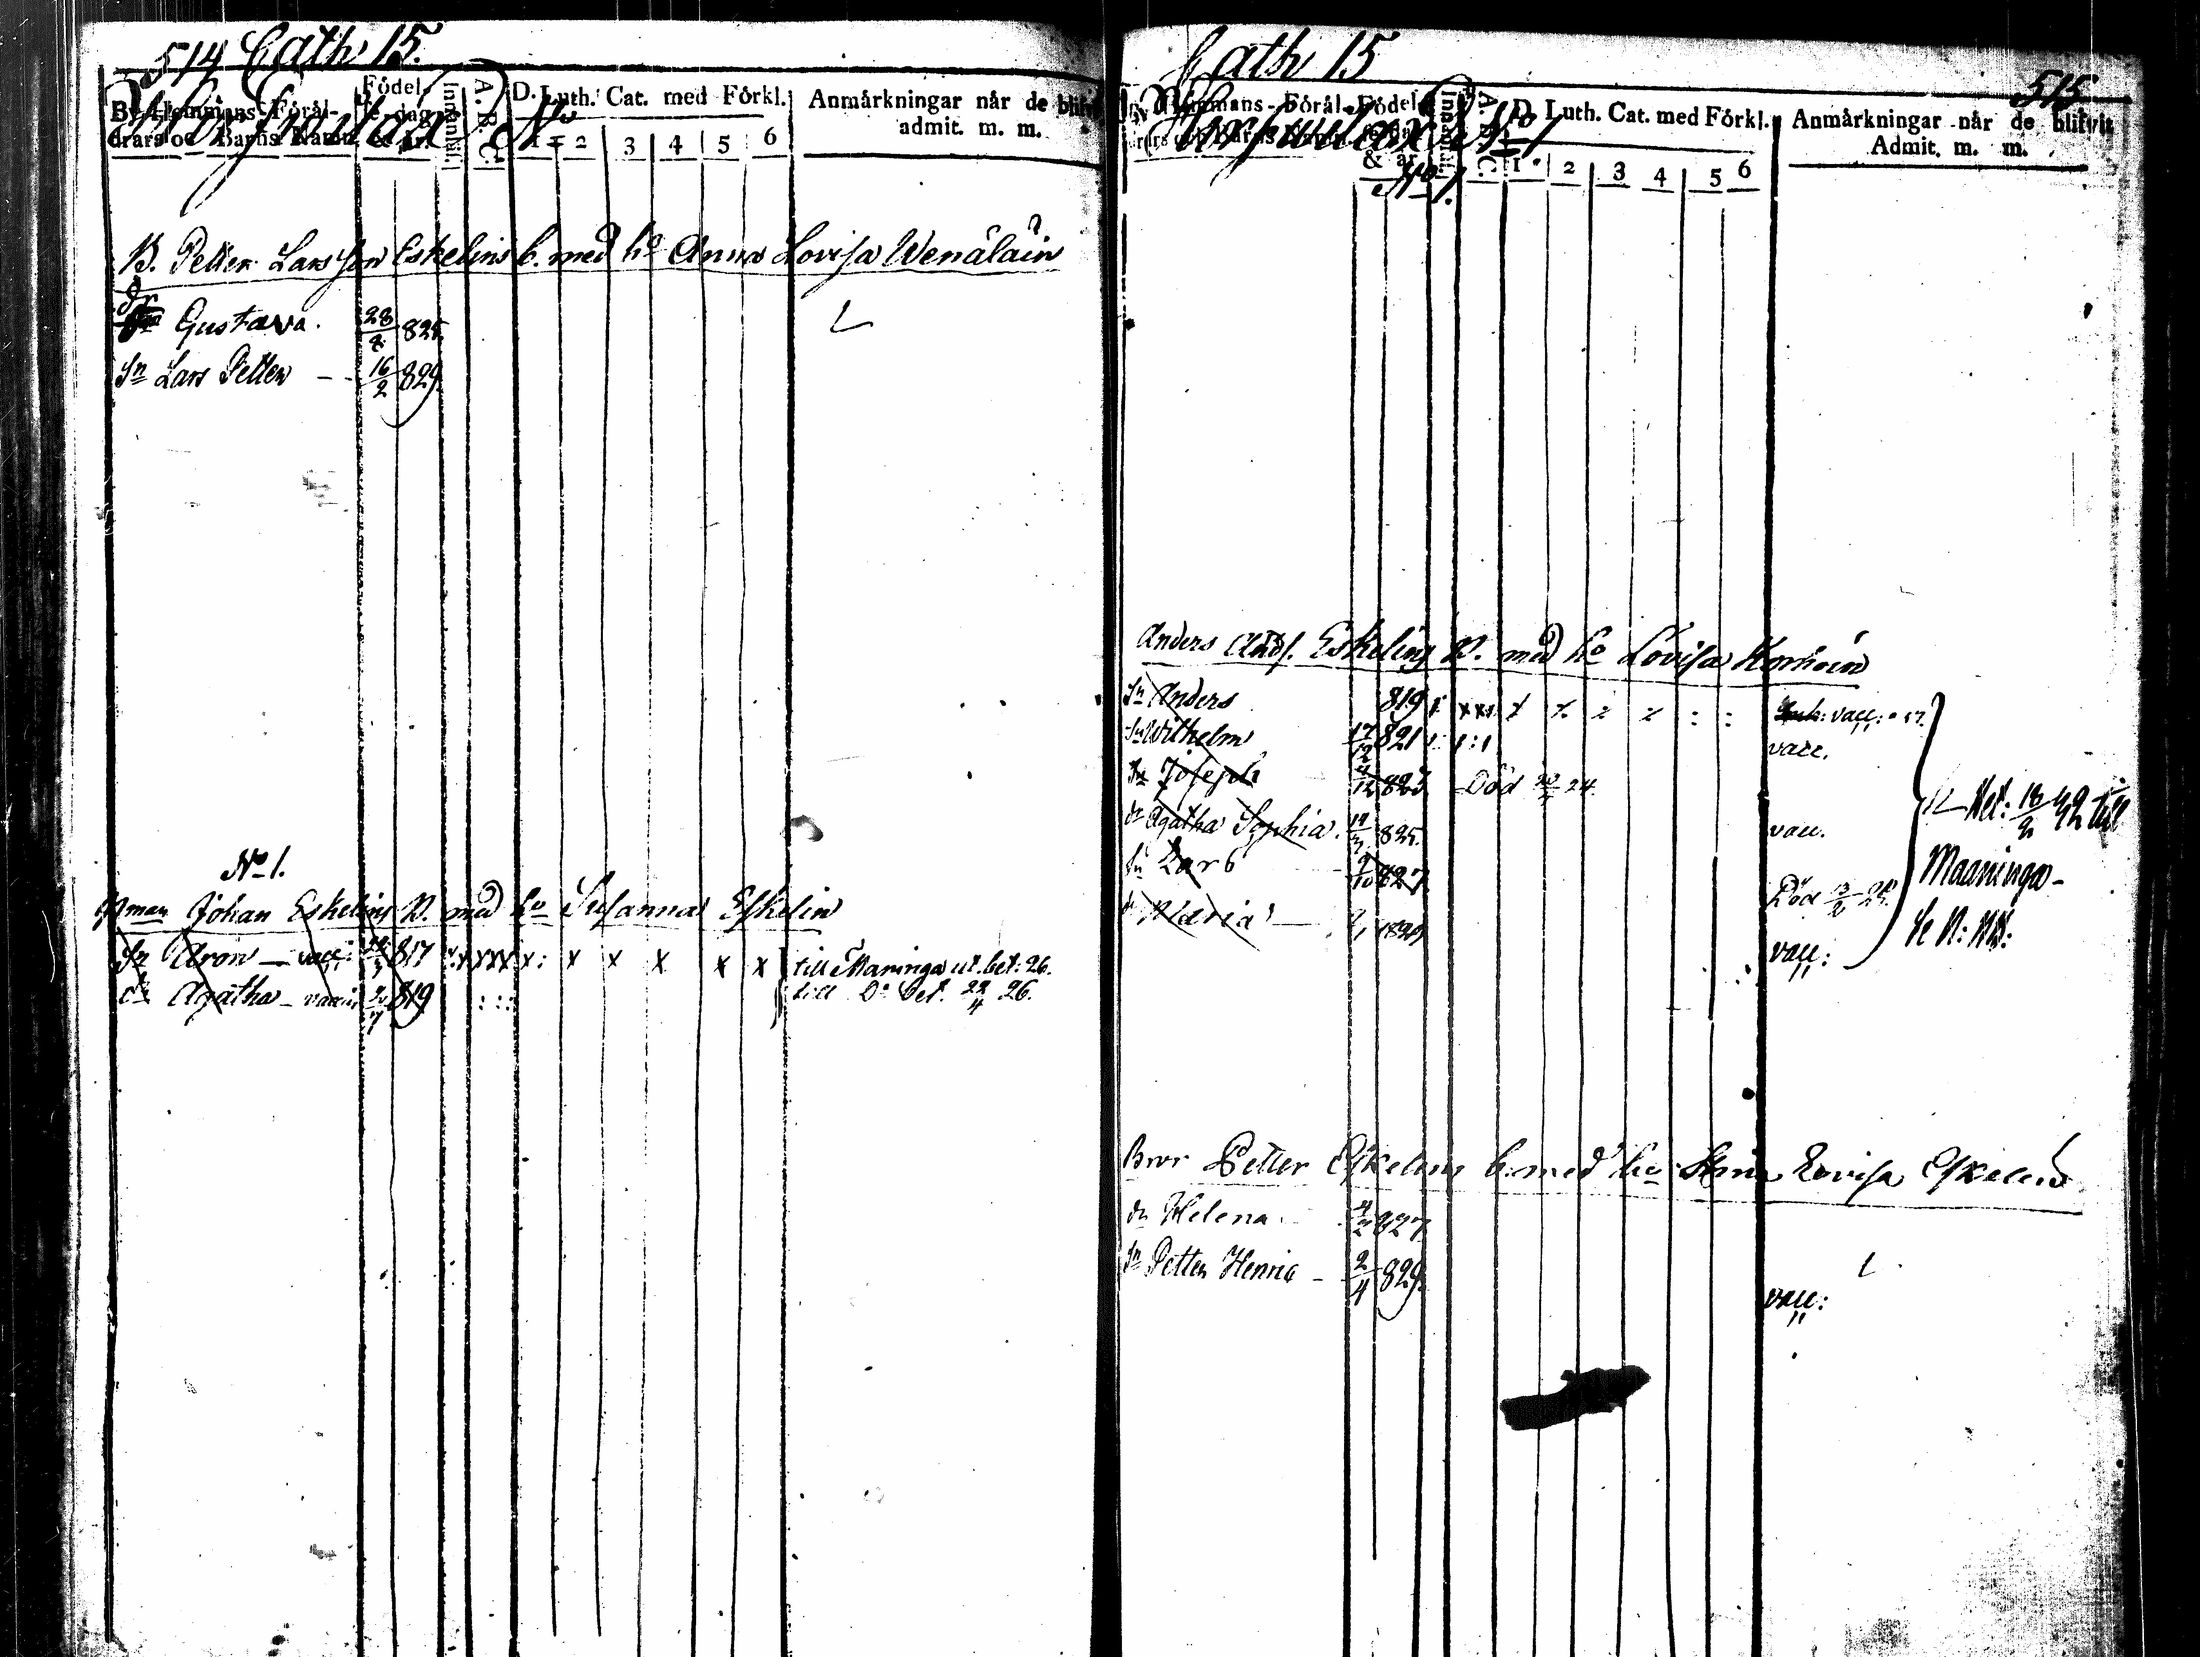 514 Cath 15.
By, Hemmans-Föräl-
drars oc Barns Namn
Födel-
se dag
& år.
Innankl.
A. B. C.
D. Luth. Cat. med Förkl.
1 2 3 4 5 6
Anmärkningar när de blifvit
admit. m. m.
B. Petter Larsson Eskelins b. med ho Anna Lovisa Wenäläin
dr Gustava. 28 825
Sn Lars Petter - - 16/2 829.
No 1.
Johan Eskelins B. med ho Susanna Eskelin
Sn Aron — vacc: 817 x x x x x : x x x x x till Maninga ut. bet: 26.
dr Agatha - vaccin 819 : : : till Do bet. 22/4 26.
Cath 15
515
Hemmans-Föräl-
Födel-
& år
No 1
No 1.
Innankl.
A. B. C.
D. Luth. Cat. med Förkl.
1 2 3 4 5 6
Anmärkningar när de blifvit
Admit. m. m.
Anders Ands. Eskelins B. med ho Lovisa Korhoin
Sn Anders 819 vacc:
Sn Wilhelm 17/12 821 vacc.
Sn Joseph 4/12 823 Död 24.
dr Agatha Sophia. 825. vacc.
Sn Lars 9/10 827 Död
dr Maria — 1829 vacc:
Bet: 18/2 42 till
Maaninga -
Bror Petter Eskelins b. med ho Anna Lovisa Eskelin
dr Helena 827
Sn Petter Henric - 2/4 829.
vacc: